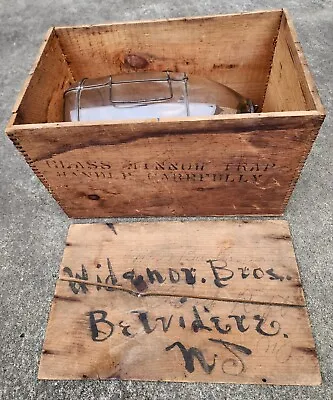 GLASS MINNOW TRAP
HANDLE CAREFULLY
Widenor. Bros.
Belvidere.
NJ